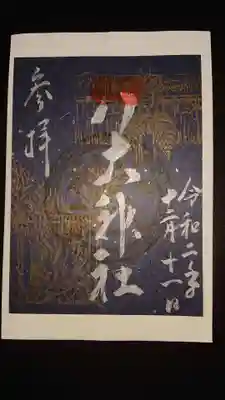 参拝
八大神社
令和二年
十二月十一日